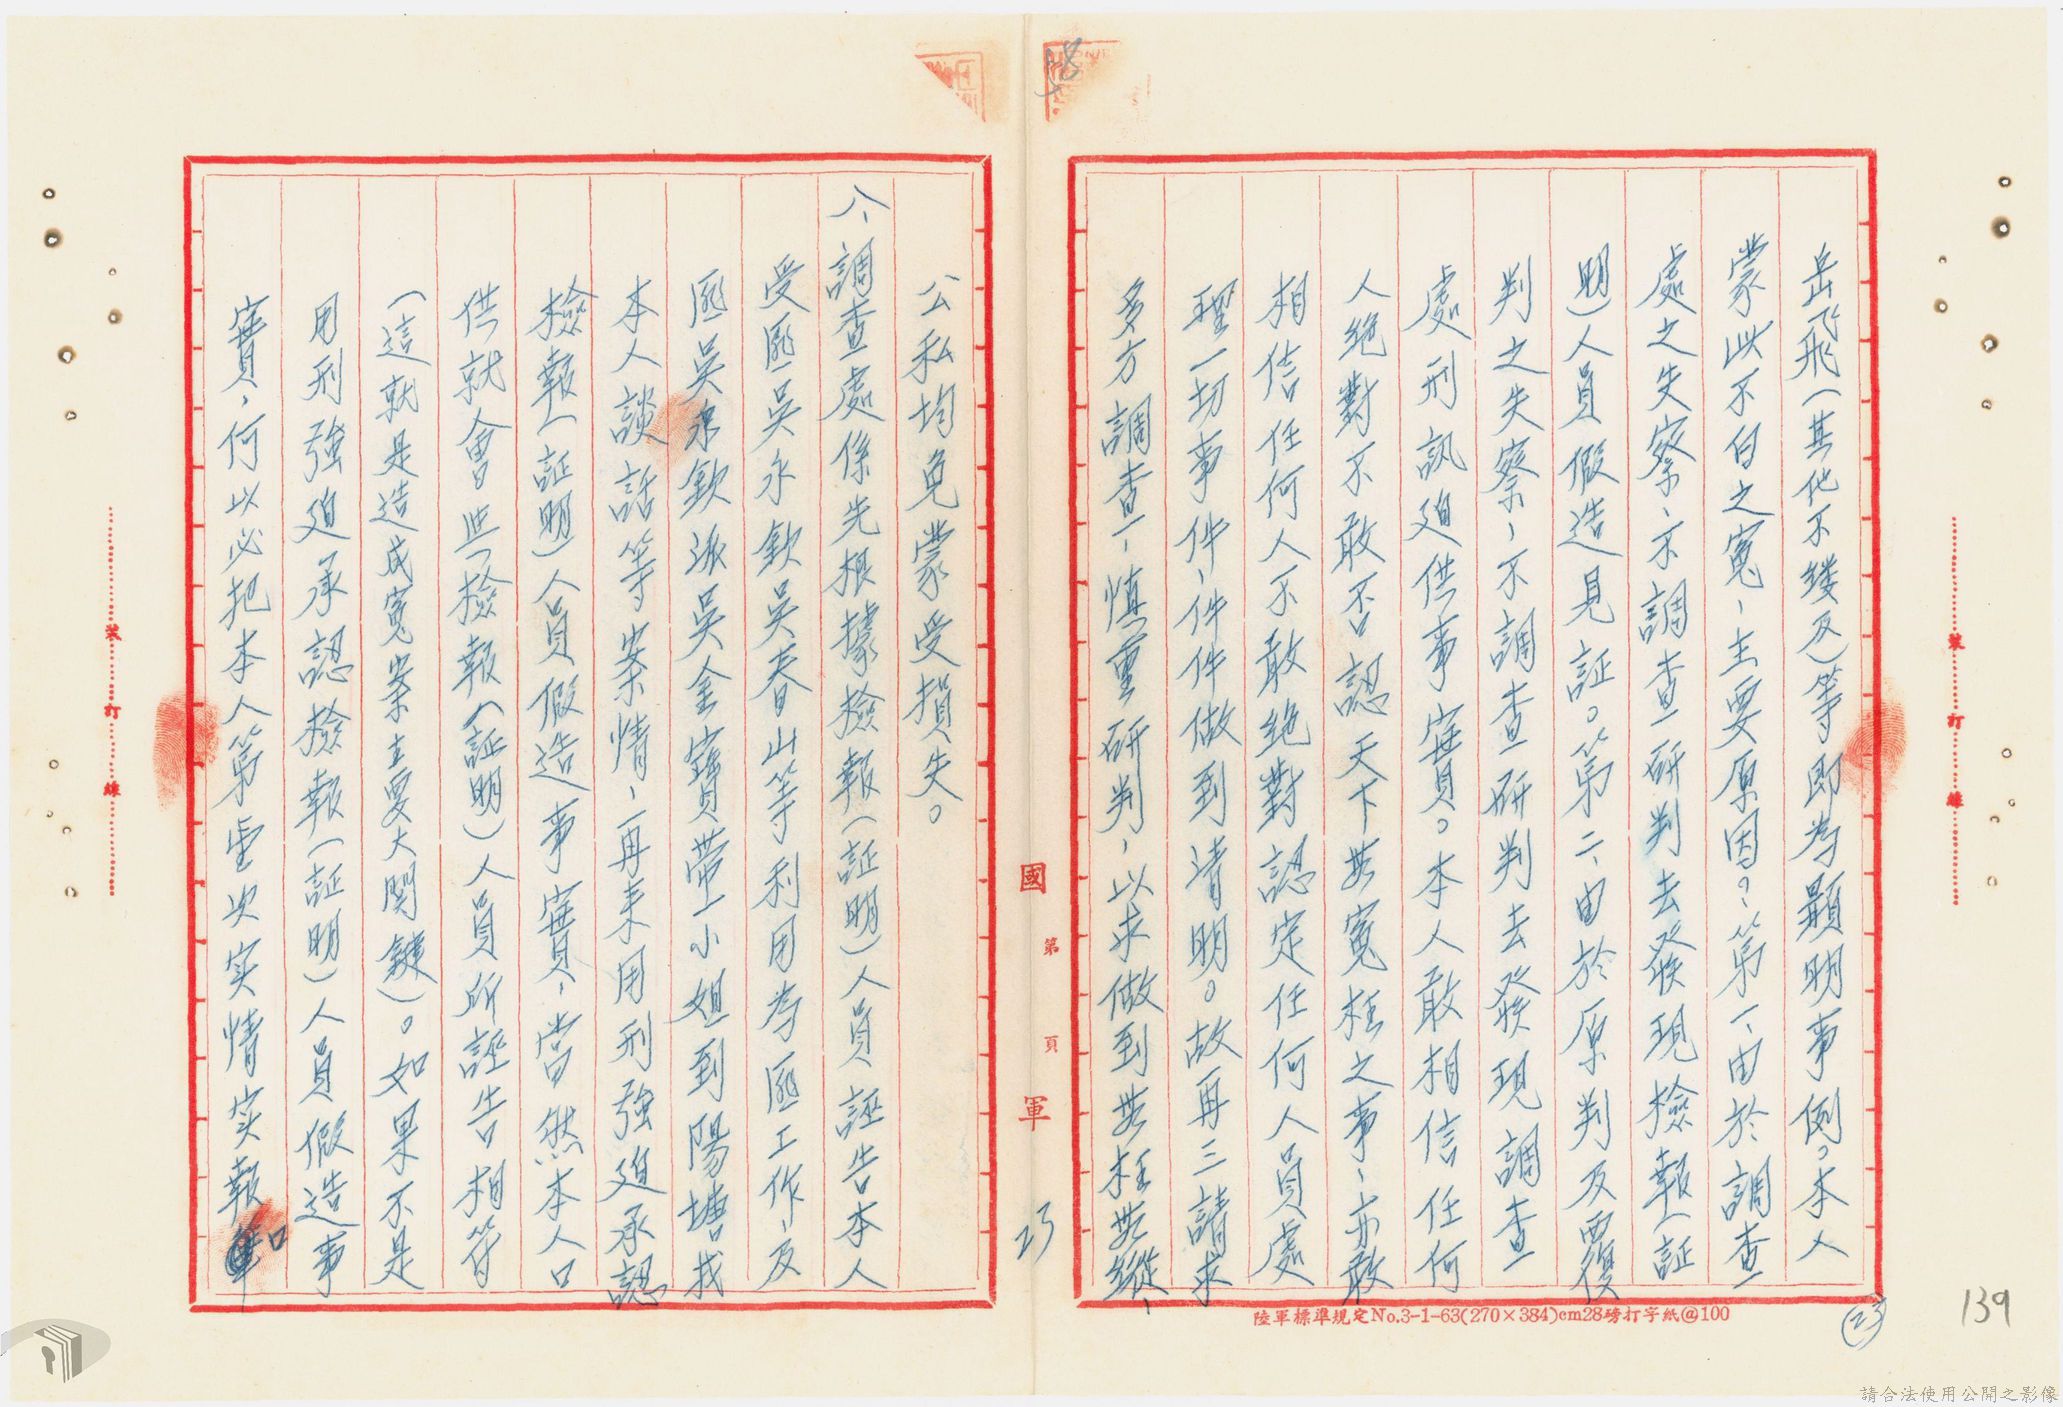 岳飛(其他不縷及)等即為顯明事例。本人
蒙此不白之寃、主要原因？第一、由於調查
處之失察、不調查研判去發現檢報(証
明)人員假造見証。第二、由於原判及覆
判之失察、不調查研判去發現調查
處刑訊廹供事實。本人敢相信任何
人絕對不敢否認天下無寃枉之事、亦敢
相信任何人不敢絕對認定任何人員處
理一切事件、件件做到清明。故再三請求
多方調查、慎重研判、以求做到無枉無縱、
公私均免蒙受損失。
八、調查處係先根據檢報(証明)人員誣告本人
受匪吳永欽吳春山等利用為匪工作、及
匪吳永欽派吳金寶帶一小姐到陽塘找
本人談話等案情、再來用刑強廹承認
檢報(証明)人員假造事實、當然本人口
供就會與檢報(証明)人員所誣告相符
(這就是造成寃案主要大関鍵)。如果不是
用刑強廹承認檢報(証明)人員假造事
實、何以必把本人第壹次实情实報口
國 第 頁 軍
23
陸軍標準規定No.3-1-63(270×384)cm28磅打字紙@100
23
139
裝 訂 線
裝 訂 線
請合法使用公開之影像